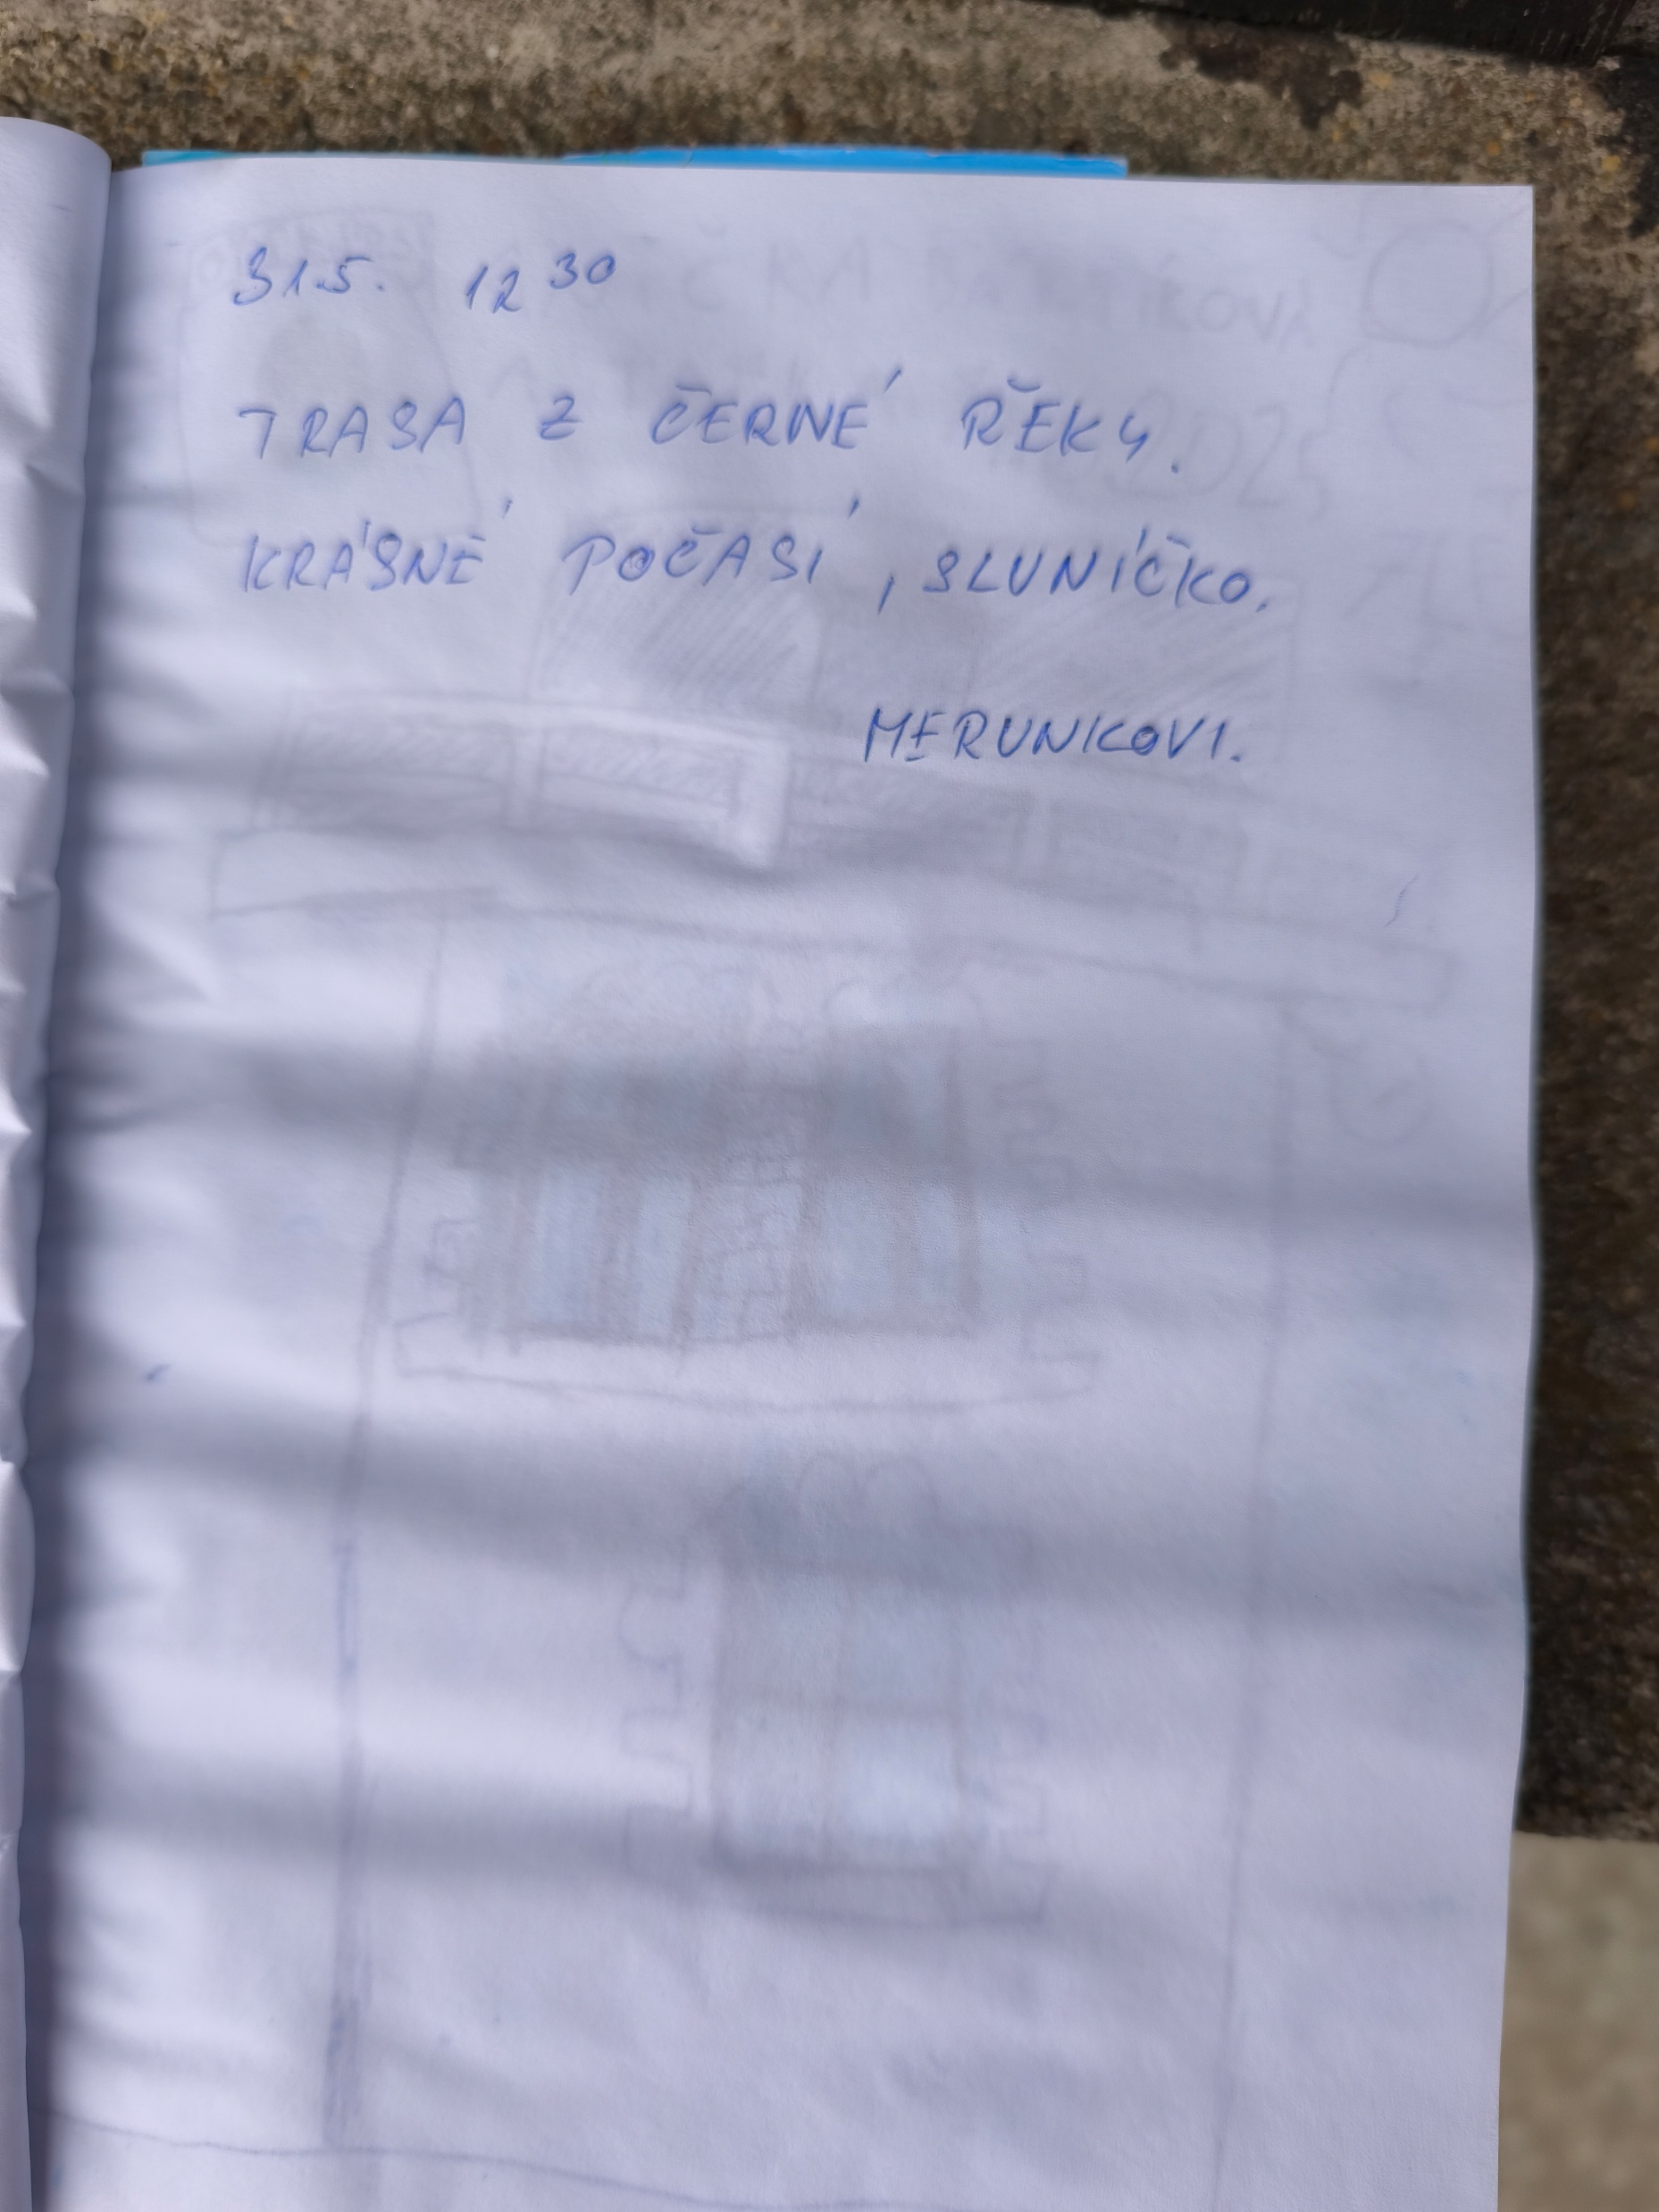 31.5. 12 30
TRASA Z ČERNÉ ŘEKY.
KRÁSNÉ POČASÍ, SLUNÍČKO.
MERUNKOVI.